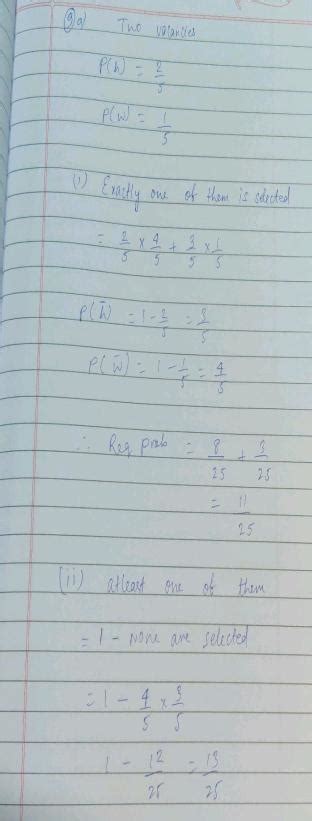 9a) Two vacancies
P(h) = 2/5
P(w) = 1/5
(i) Exactly one of them is selected
= 2/5 x 4/5 + 3/5 x 1/5
P(h̄) = 1 - 2/5 = 3/5
P(w̄) = 1 - 1/5 = 4/5
∴ Req prob = 8/25 + 3/25
= 11/25
(ii) atleast one of them
= 1 - None are selected
= 1 - 4/5 x 3/5
1 - 12/25 = 13/25